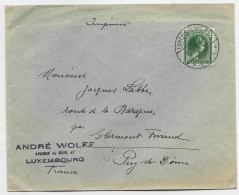 Imprimé
Monsieur
Jacques Labbe,
route de la Baraque,
par Clermont Ferrand
Puy de Dôme
ANDRÉ WOLFF
LUXEMBOURG
France